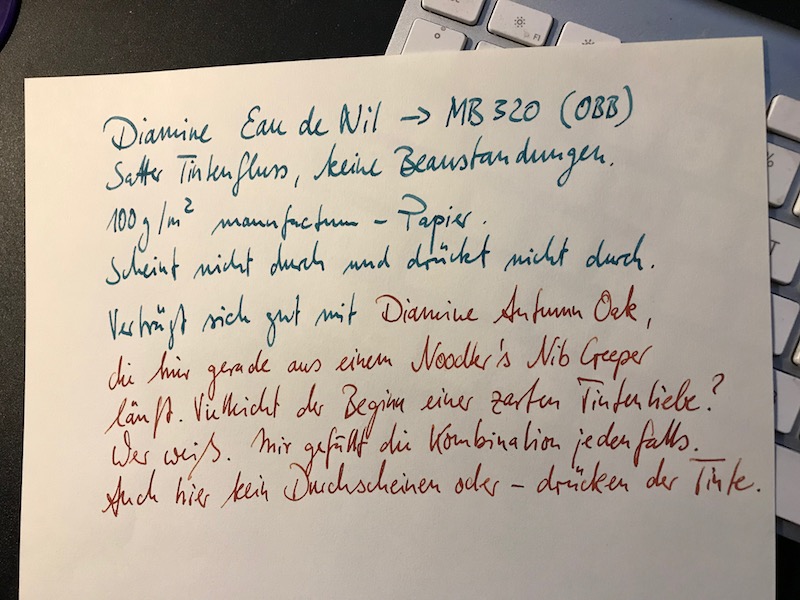 Diamine Eau de Nil → MB 320 (OBB)
Satter Tintenfluss, keine Beanstandungen.
100g/m² manufactum - Papier.
Scheint nicht durch und drückt nicht durch.
Verträgt sich gut mit Diamine Autumn Oak,
die hier gerade aus einem Noodler's Nib Creeper
läuft. Vielleicht der Beginn einer zarten Tintenliebe?
Wer weiß. Mir gefällt die Kombination jedenfalls.
Auch hier kein Durchscheinen oder - drücken der Tinte.